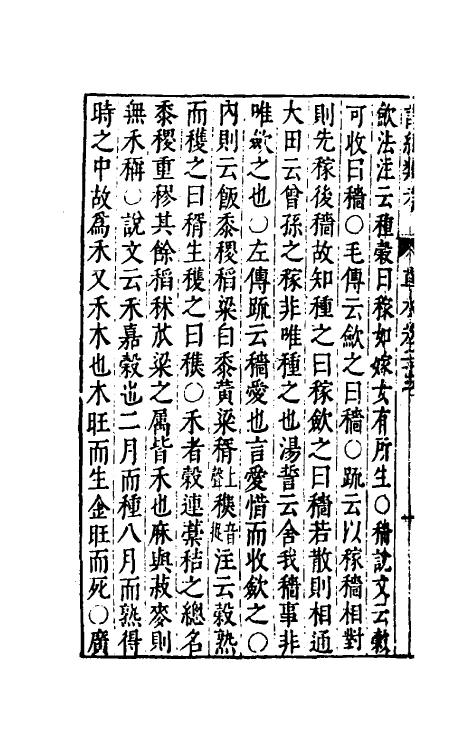 歛法注云種穀曰稼如嫁女有所生〇穡說文云穀
可收曰穡〇毛傳云歛之曰穡〇䟽云以稼穡相對
則先稼後穡故知種之曰稼歛之曰穡若散則相通
大田云曾孫之稼非唯種之也湯誓云舍我穡事非
唯歛之也〇左傳䟽云穡愛也言愛惜而收歛之〇
内則云飯黍稷稻粱白黍黄粱稰上聲穛音捉注云穀熟
而穫之曰稰生穫之曰穛〇禾者穀連藁秸之總名
黍稷重穋其餘稻秫苽粱之属皆禾也麻與菽麥則
無禾稱〇說文云禾嘉穀也二月而種八月而熟得
時之中故爲禾又禾木也木旺而生金旺而死〇廣